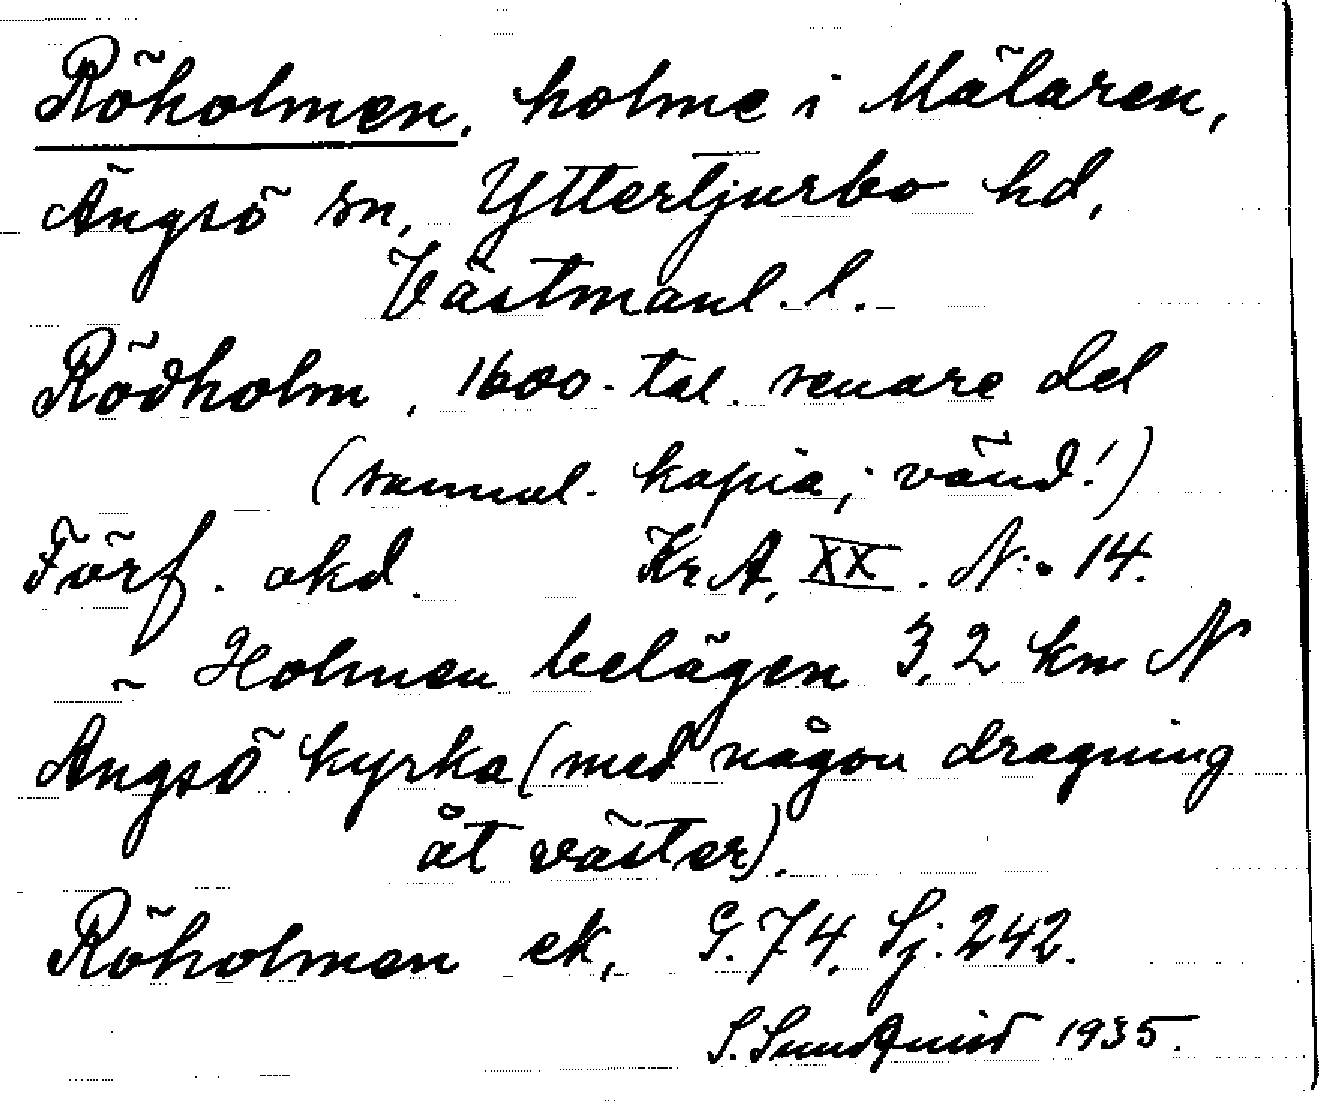 Röholmen, holme i Mälaren,
Ängsö sn, Yttertjurbo hd,
Västmanl. l.
Rödholm, 1600-tal. senare del
(samml. kopia; vänd!)
Förf. okd. Kr. A. XX. N:o 14.
- Holmen belägen 3,2 km N
Ängsö kyrka (med någon dragning
åt väster).
Röholmen ek. G. 74. Sj. 242.
S. Sundquist 1935.